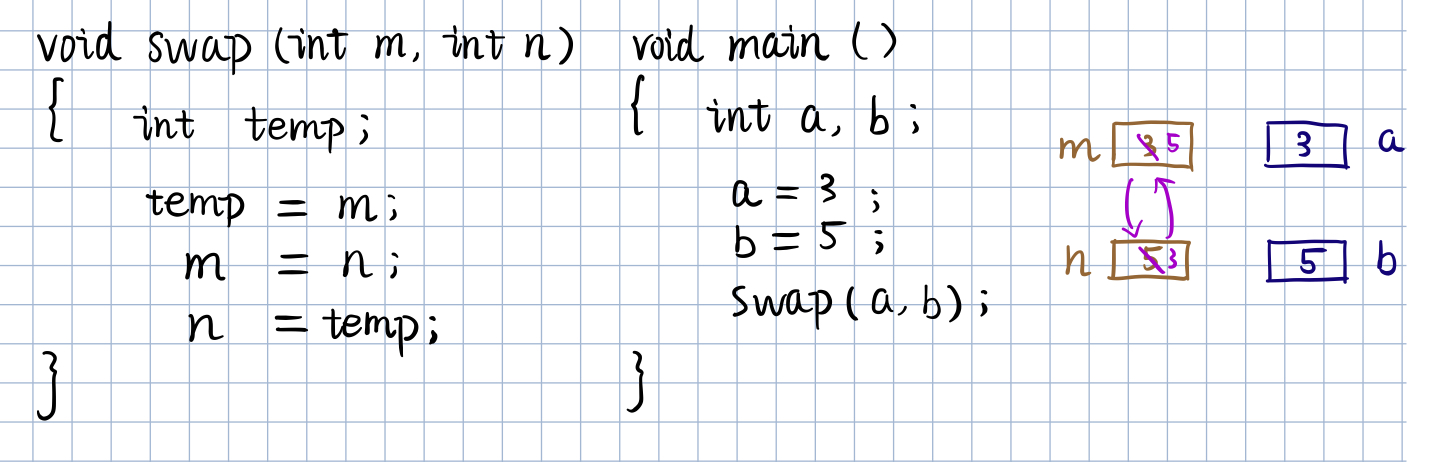 void swap (int m, int n)
{ int temp;
temp = m;
m = n;
n = temp;
}
void main ()
{ int a, b;
a = 3;
b = 5;
swap(a, b);
}
m 3 5
n 5 3
3 a
5 b